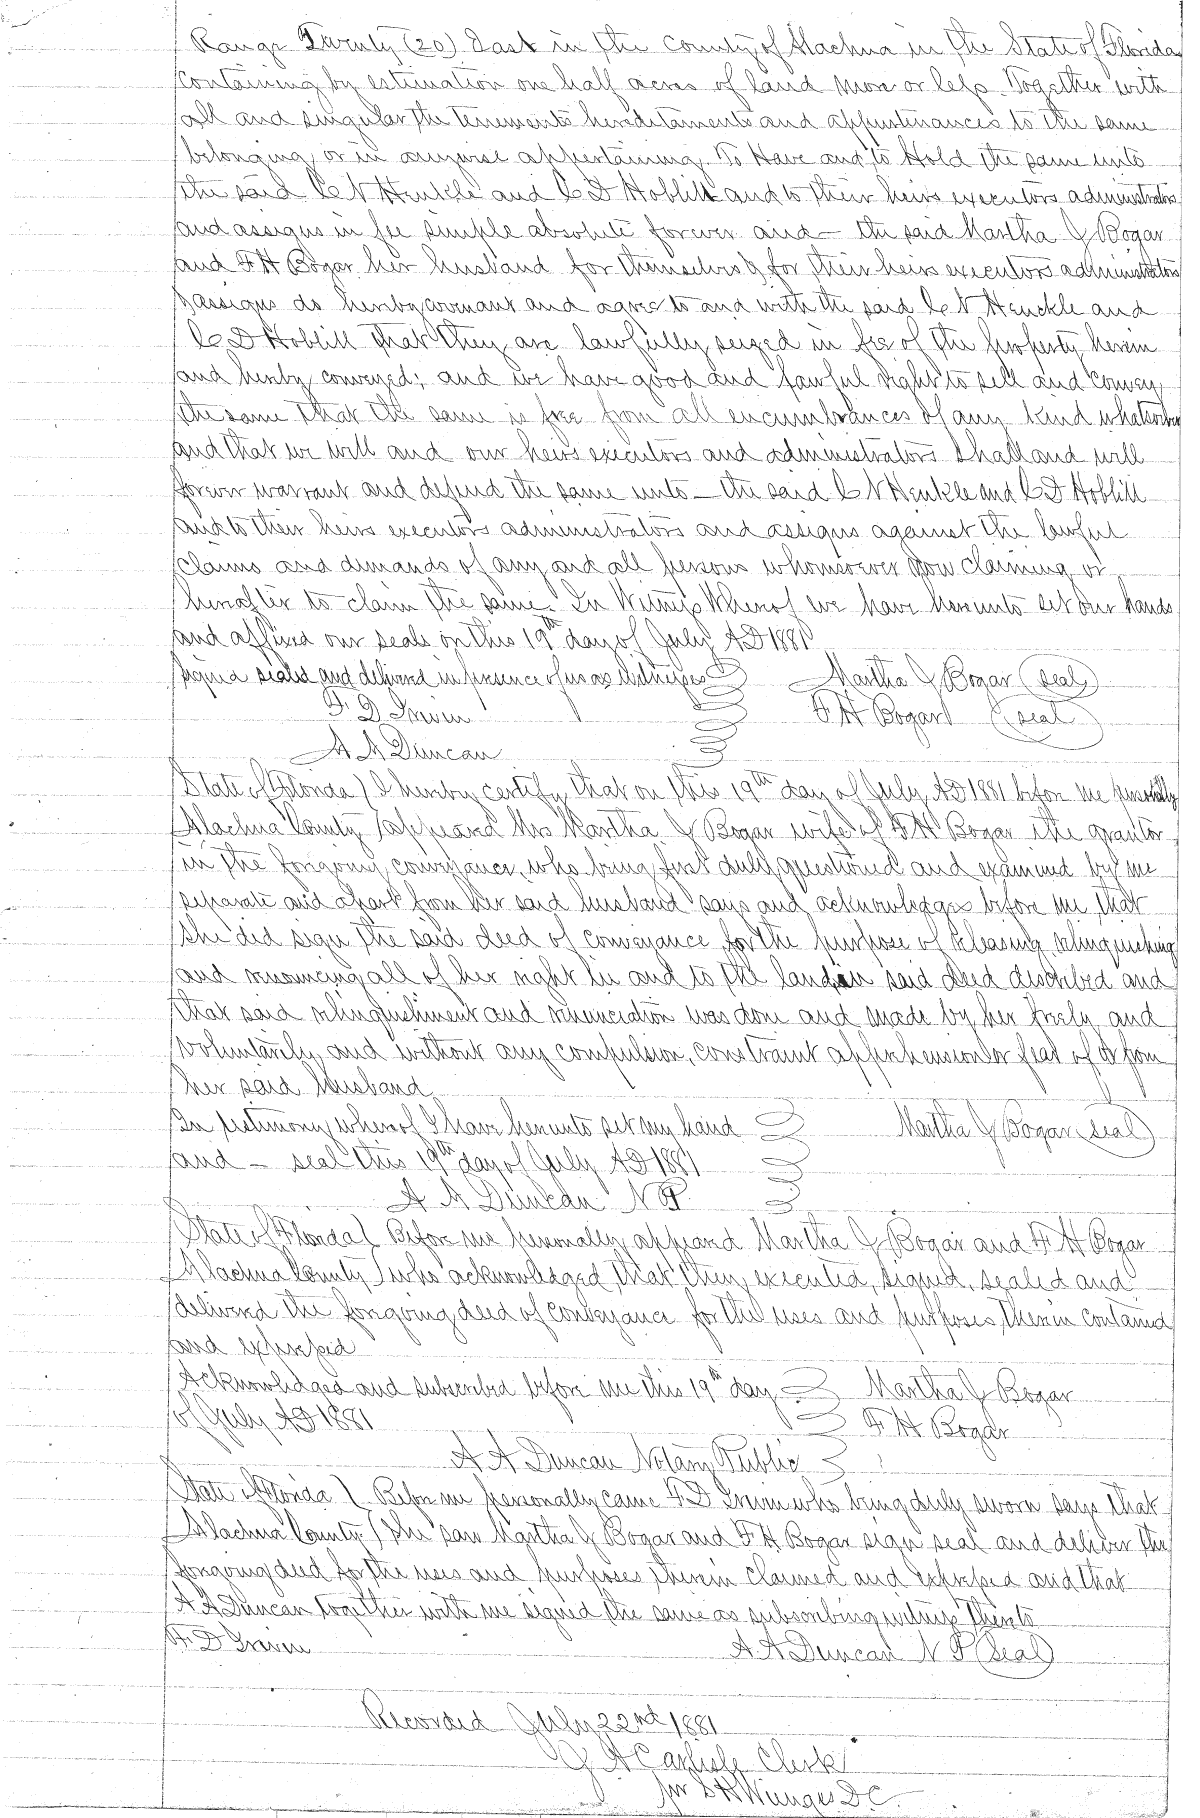 Range Twenty (20) East in the county of Alachua in the State of Florida
containing by estimation one half acres of land more or less. Together with
all and singular the tenements hereditaments and appurtenances to the same
belonging or in anywise appertaining. To Have and to Hold the same unto
the said C N Henkle and C D Hoblitt and to their heirs executors administrators
and assigns in fee simple absolute forever and — the said Martha J Bogar
and F H Bogar her husband for themselves & for their heirs executors administrators
& assigns do hereby covenant and agree to and with the said C N Henckle and
C D Hoblill that they are lawfully seized in fee of the property herein
and hereby conveyed; and we have good and lawful right to sell and convey
the same that the same is free from all encumbrances of any kind whatsoever
and that we will and our heirs executors and administrators shall and will
forever warrant and defend the same unto — the said C N Henkle and C D Hoblill
and to their heirs executors administrators and assigns against the lawful
claims and demands of any and all persons whomsoever now claiming or
hereafter to claim the same. In Witness Whereof we have hereunto set our hands
and affixed our seals on this 19th day of July AD 1881
Signed sealed and delivered in presence of us as witnesses Martha J Bogar (seal)
F. D Irwin F H Bogar (seal)
A A Duncan
State of Florida ) I hereby certify that on this 19th day of July AD 1881 before me personally
Alachua County ) appeared Mrs Martha J Bogar wife of F H Bogar the grantor
in the foregoing conveyance, who being first duly questioned and examined by me
separate and apart from her said husband says and acknowledges before me, that
she did sign the said deed of conveyance for the purpose of releasing, relinquishing
and renouncing all of her right in and to the land in said deed described and
that said relinquishment and renunciation was done and made by her freely and
voluntarily and without any compulsion, constraint apprehension or fear of or from
her said Husband
In testimony whereof I have hereunto set my hand Martha J Bogar (seal)
and — seal this 19th day of July AD 1881
A A Duncan N P
State of Florida ) Before me personally appeared Martha J Bogar and F H Bogar
Alachua County ) who acknowledged that they executed, signed, sealed and
delivered the foregoing deed of conveyance for the uses and purposes therein contained
and expressed
Acknowledged and subscribed before me this 19th day Martha J Bogar
of July AD 1881 F H Bogar
A A Duncan Notary Public
State of Florida ) Before me personally came F D Irwin who being duly sworn says that
Alachua County ) She saw Martha J Bogar and F H Bogar sign seal and deliver the
foregoing deed for the uses and purposes therein claimed and expressed and that
A A Duncan together with me signed the same as subscribing witness thereto
F. D Irwin A A Duncan N P (seal)
Recorded July 22nd 1881
J A Carlisle Clerk
per S H Wienges D.C.